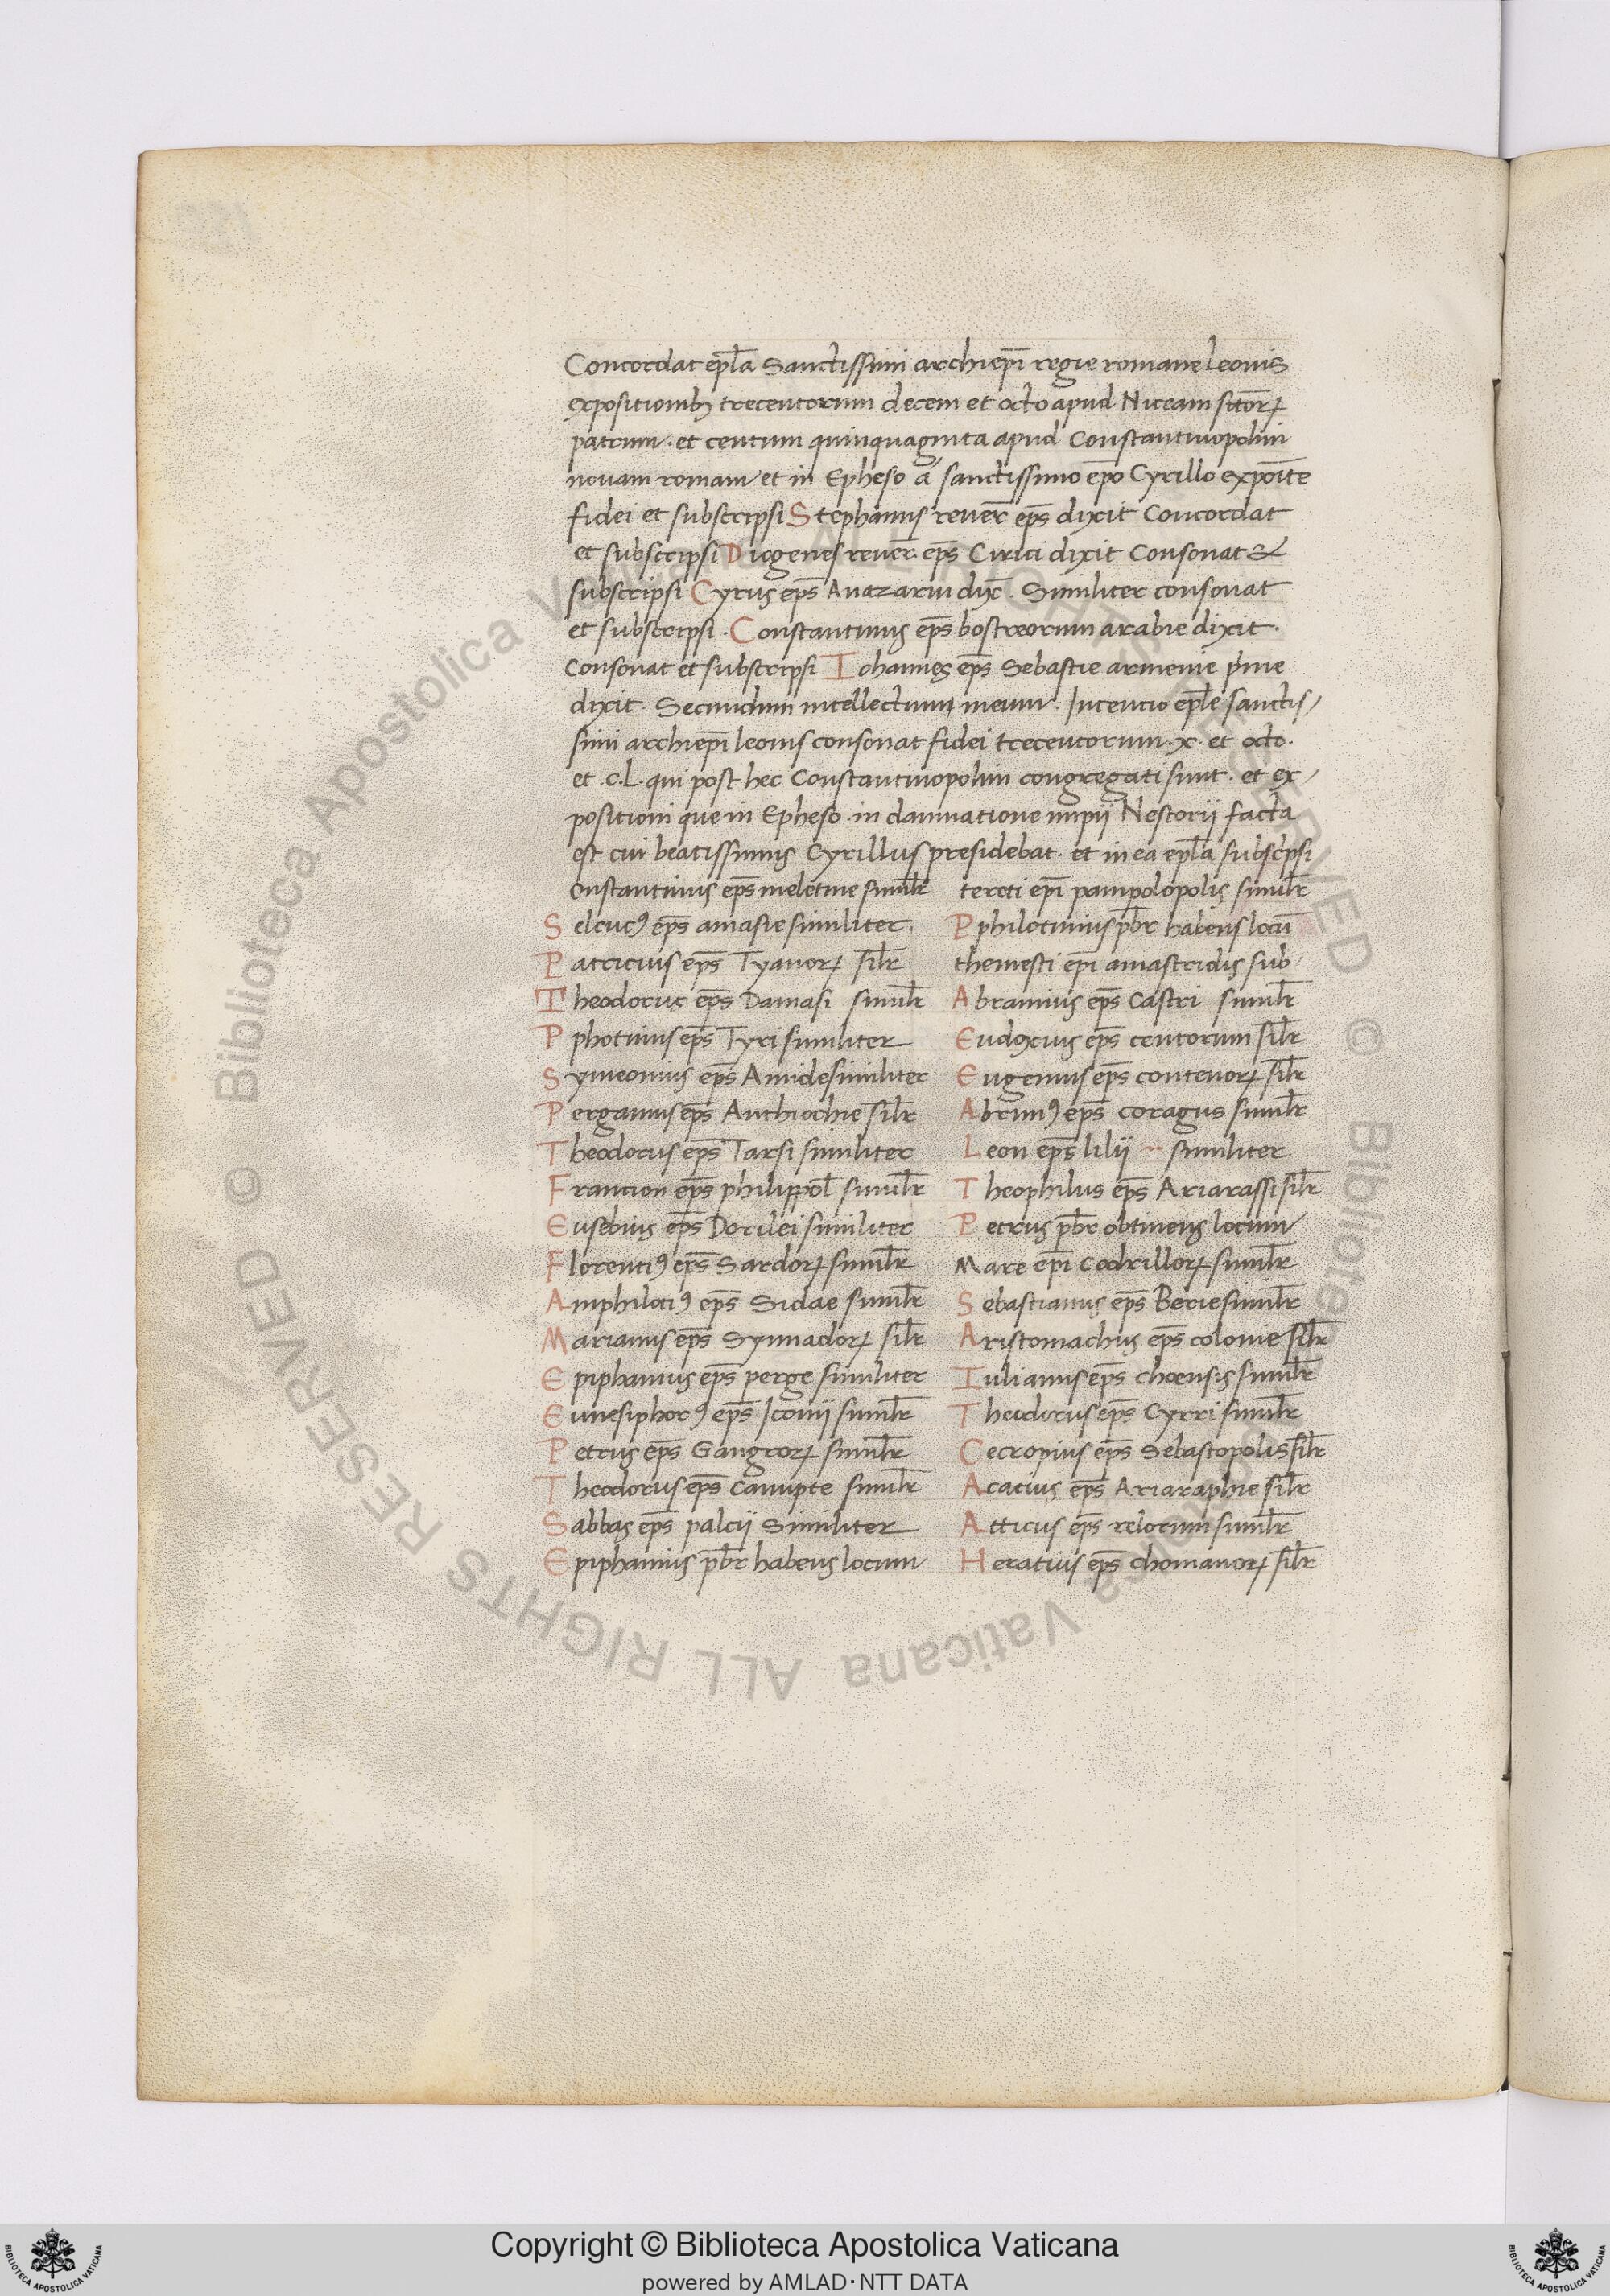 Concordat ep̅l̅a Sanctissimi archiep̅i̅ regie romane Leonis
expositionibꝫ trecentorum decem et octo apud Niceam sitor̅ꝝ
patrum · et centum quinquaginta apud Constantinopolim
nouam romam et in Epheso a sanctissimo ep̅o Cyrillo expoi̅te
fidei et subscripsi Stephanus reuer̅ ep̅s dixit Concordat
et subscripsi Diogenes reuer̅. ep̅s Cirici dixit Consonat &
subscripsi Cyrus ep̅s Anazarui dix̅. Similiter consonat
et subscripsi · Constantinus ep̅s bostreorum arabie dixit ·
Consonat et subscripsi Iohannes ep̅s Sebastie armenie p̍me
dixit · Secundum intellectum meum · Intentio ep̅l̅e sanctis/
simi archiep̅i leonis consonat fidei trecentorum · x · et octo ·
et · c · L · qui post hec Constantinopolim congregati sunt · et ex/
positioni que in Epheso · in damnatione impii Nestorij facta
est cui beatissimus Cyrillus presidebat · et in ea ep̅l̅a subsc̍psi
onstantinus ep̅s meletine simil̅r
Seleucꝰ ep̅s amasie similiter ·
Patricius ep̅s Tyanorꝝ sil̅r
Theodorus ep̅s Damasi simil̅r
Pphotinus ep̅s Tyri similiter
Symeonius ep̅s Amide similiter
Pergamius ep̅s Anthiochie sil̅r
Theodorus ep̅s Tarsi similiter
Francion ep̅s philippol̅ simil̅r
Eusebius ep̅s Dorilei similiter
Florentiꝰ ep̅s Sardorꝝ simil̅r
Amphilotiꝰ ep̅s Sidae simil̅r
Marianus ep̅s Synnadorꝝ sil̅r
Epiphanius ep̅s perge similiter
Eunesiphorꝰ ep̅s Iconij simil̅r
Petrus ep̅s Gangrorꝝ simil̅r
Theodorus ep̅s Canupte simil̅r
Sabbas ep̅s palcij Similiter
Epiphanius pb̅r habens locum
tereti ep̅i pampolopolis simil̅r
Pphilotimius pb̅r habens locu̅
themesti ep̅i amastridis sub·
Abramius ep̅s Castri simil̅r
Eudoxius ep̅s centorum sil̅r
Eugenius ep̅s contenorꝝ sil̅r
Abrimꝰ ep̅s coragus simil̅r
Leon ep̅s lilij similiter
Theophilus ep̅s Ariarassi sil̅r
Petrus pb̅r obtinens locum
Mare ep̅i Codrillorꝝ simil̅r
Sebastianus ep̅s Berie simil̅r
Aristomachus ep̅s colonie sil̅r
Iulianus ep̅s choensis simil̅r
Theodorus ep̅s Cyrri simil̅r
Cecropius ep̅s Sebastopolis sil̅r
Acacius ep̅s Ariaraphie sil̅r
Atticus ep̅s relorum simil̅r
Heratius ep̅s chomanorꝝ sil̅r
© Biblioteca Apostolica Vaticana ALL RIGHTS RESERVED
Copyright © Biblioteca Apostolica Vaticana
powered by AMLAD·NTT DATA